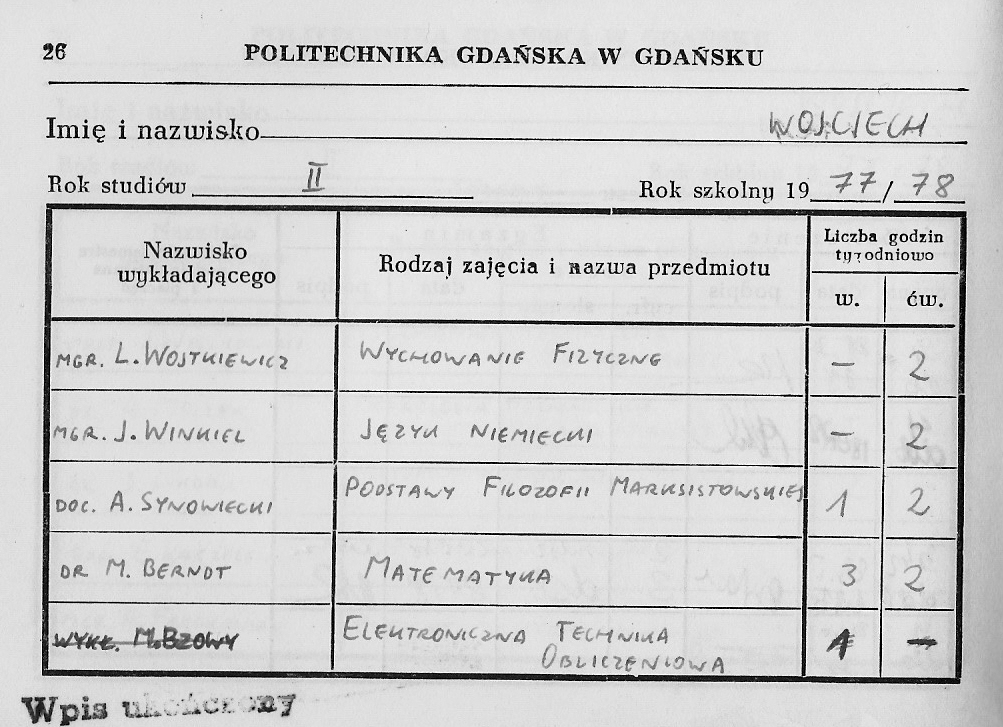 26 POLITECHNIKA GDAŃSKA W GDAŃSKU
Imię i nazwisko WOJCIECH
Rok studiów II Rok szkolny 19 77 / 78
Nazwisko wykładającego Rodzaj zajęcia i nazwa przedmiotu Liczba godzin tygodniowo
w. ćw.
MGR. L. WOJTKIEWICZ WYCHOWANIE FIZYCZNE – 2
MGR. J. WINKIEL JĘZYK NIEMIECKI – 2
DOC. A. SYNOWIECKI PODSTAWY FILOZOFII MARKSISTOWSKIEJ 1 2
DR M. BERNDT MATEMATYKA 3 2
WYKŁ. M. BZOWY ELEKTRONICZNA TECHNIKA 1 –
OBLICZENIOWA
Wpis ukończony